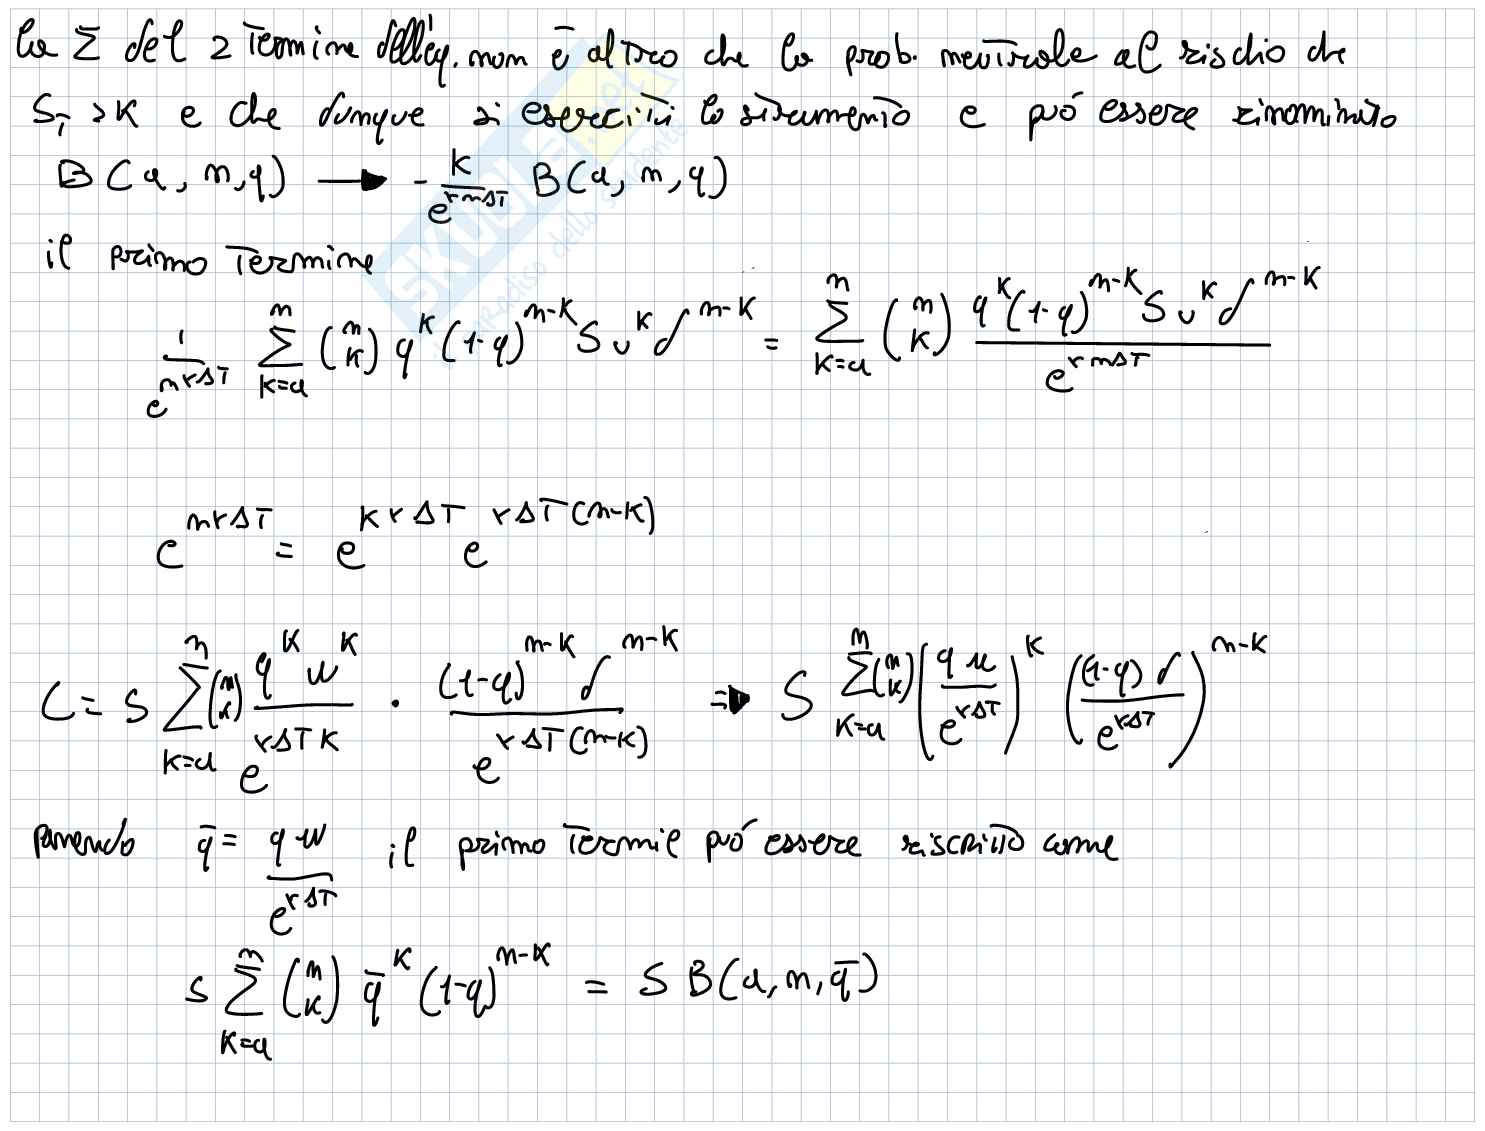 la Σ del 2 termine dell'eq. non è altro che la prob. neutrale al rischio che
S_T > K e che dunque si eserciti lo strumento e può essere rinominato
B(a, n, q) → - K / e^{rnΔT} B(a, n, q)
il primo termine
1 / e^{nrΔT} Σ_{K=a}^{n} (n K) q^K (1-q)^{n-K} S u^K d^{n-K} = Σ_{K=a}^{n} (n K) q^K (1-q)^{n-K} S u^K d^{n-K} / e^{rnΔT}
e^{nrΔT} = e^{KrΔT} e^{rΔT(n-K)}
C = S Σ_{K=a}^{n} (n K) q^K u^K / e^{rΔTK} · (1-q)^{n-K} d^{n-K} / e^{rΔT(n-K)} ⇒ S Σ_{K=a}^{n} (n K) (q u / e^{rΔT})^K ((1-q) d / e^{rΔT})^{n-K}
ponendo q̄ = q u / e^{rΔT} il primo termie può essere riscritto come
S Σ_{K=a}^{n} (n K) q̄^K (1-q)^{n-K} = S B(a, n, q̄)
SKUOLA.net
paradiso dello studente